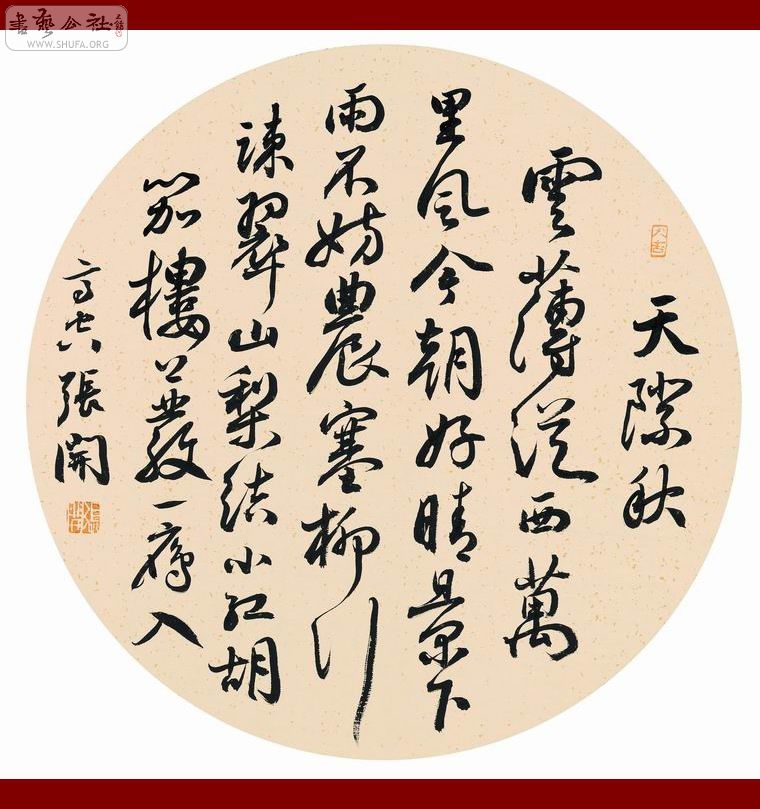 書藝公社
WWW.SHUFA.ORG
天際秋
雲薄從西萬
里風今朝好晴景下
雨不妨農塞柳行
疎翠山梨結小紅胡
笳樓上發一鴈入
高空張開